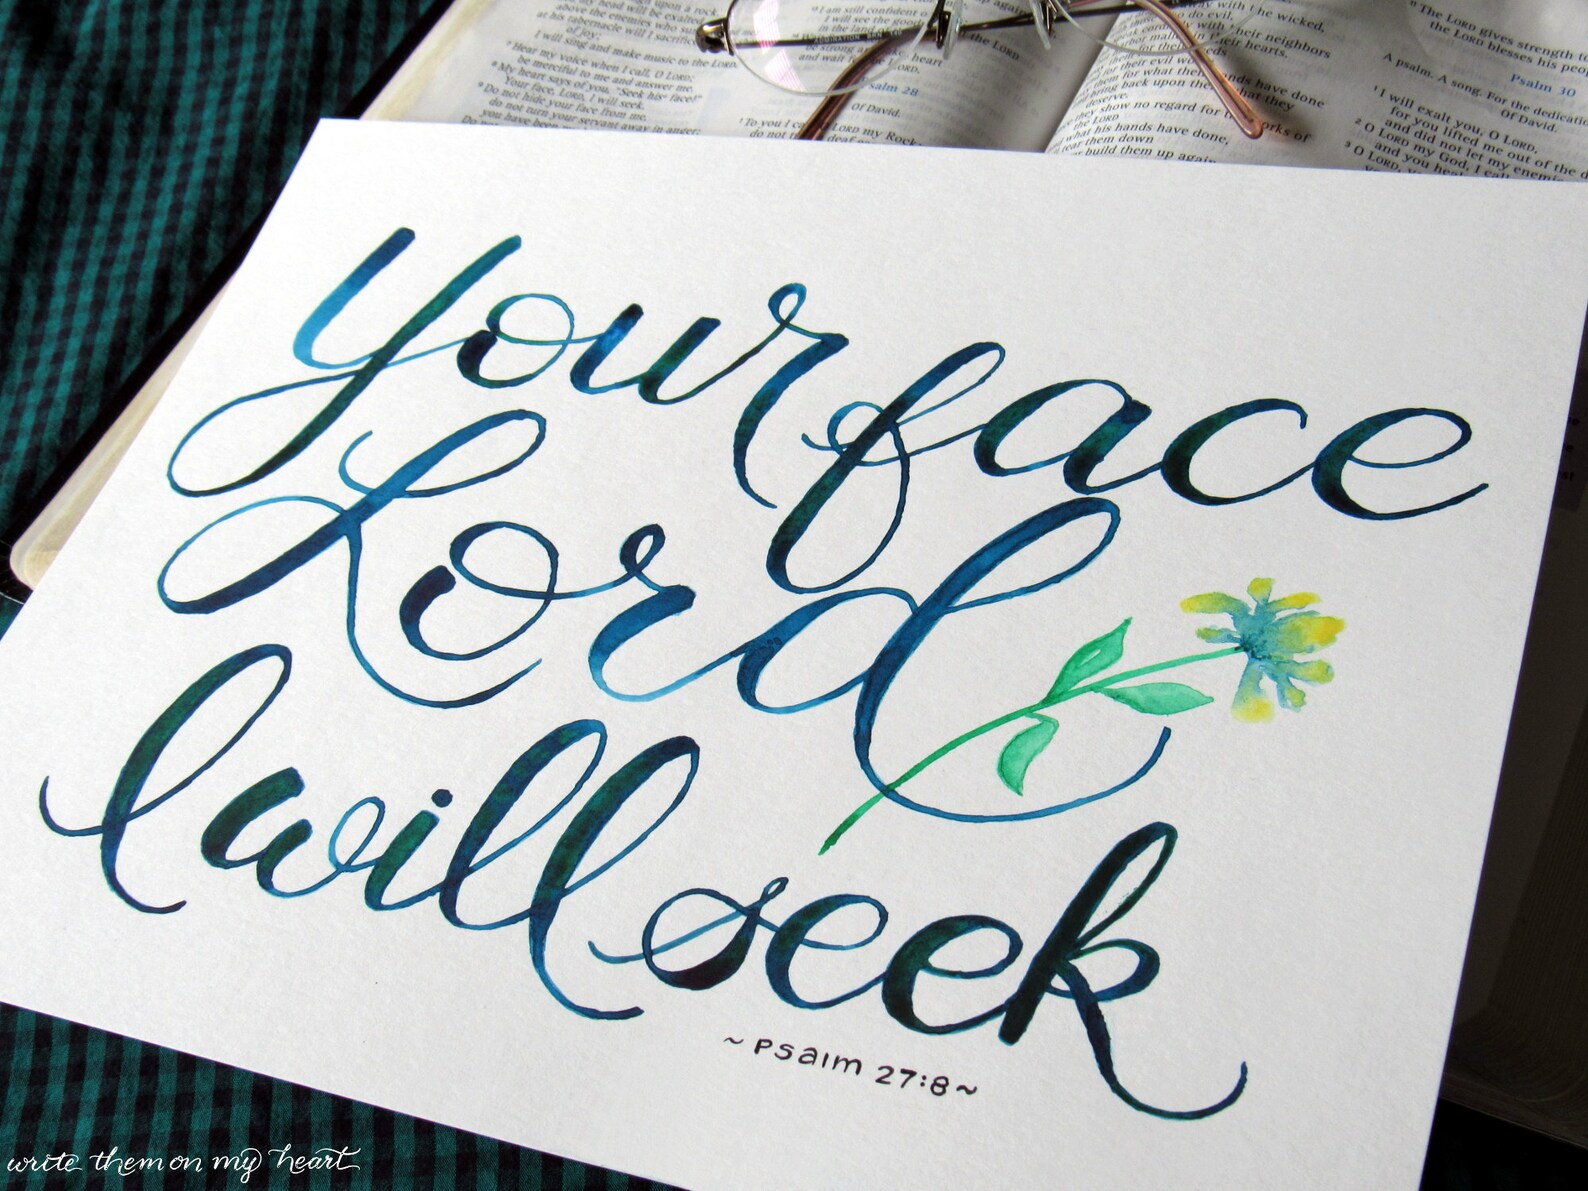 my head will be exalted
above the enemies who
at his tabernacle will I
of joy;
I will sing and make music to the LORD.
7 Hear my voice when I call, O LORD;
be merciful to me and answer me.
8 My heart says of you, "Seek his face!"
Your face, LORD, I will seek.
9 Do not hide your face from me,
do not turn your servant away in anger;
you have been
I am still confident of
I will see the
in the land
heart
and wait for the LORD.
28
Of David.
To you I LORD my Rock
do not
with the wicked,
do evil,
with their neighbors
in their hearts.
for their evil
them for what their hands have done
bring back upon them what they
deserve.
they show no regard for the works of
the LORD
what his hands have done,
tear them down
build them up again
The LORD gives strength
the LORD blesses his
Psalm 30
A psalm. A song. For the
Of David.
1 I will exalt you, O LORD,
for you lifted me out of the
and did not let my
2 O LORD my God, I
and you
3 O LORD, you
Your face
Lord
I will seek
~ Psalm 27:8 ~
write them on my heart